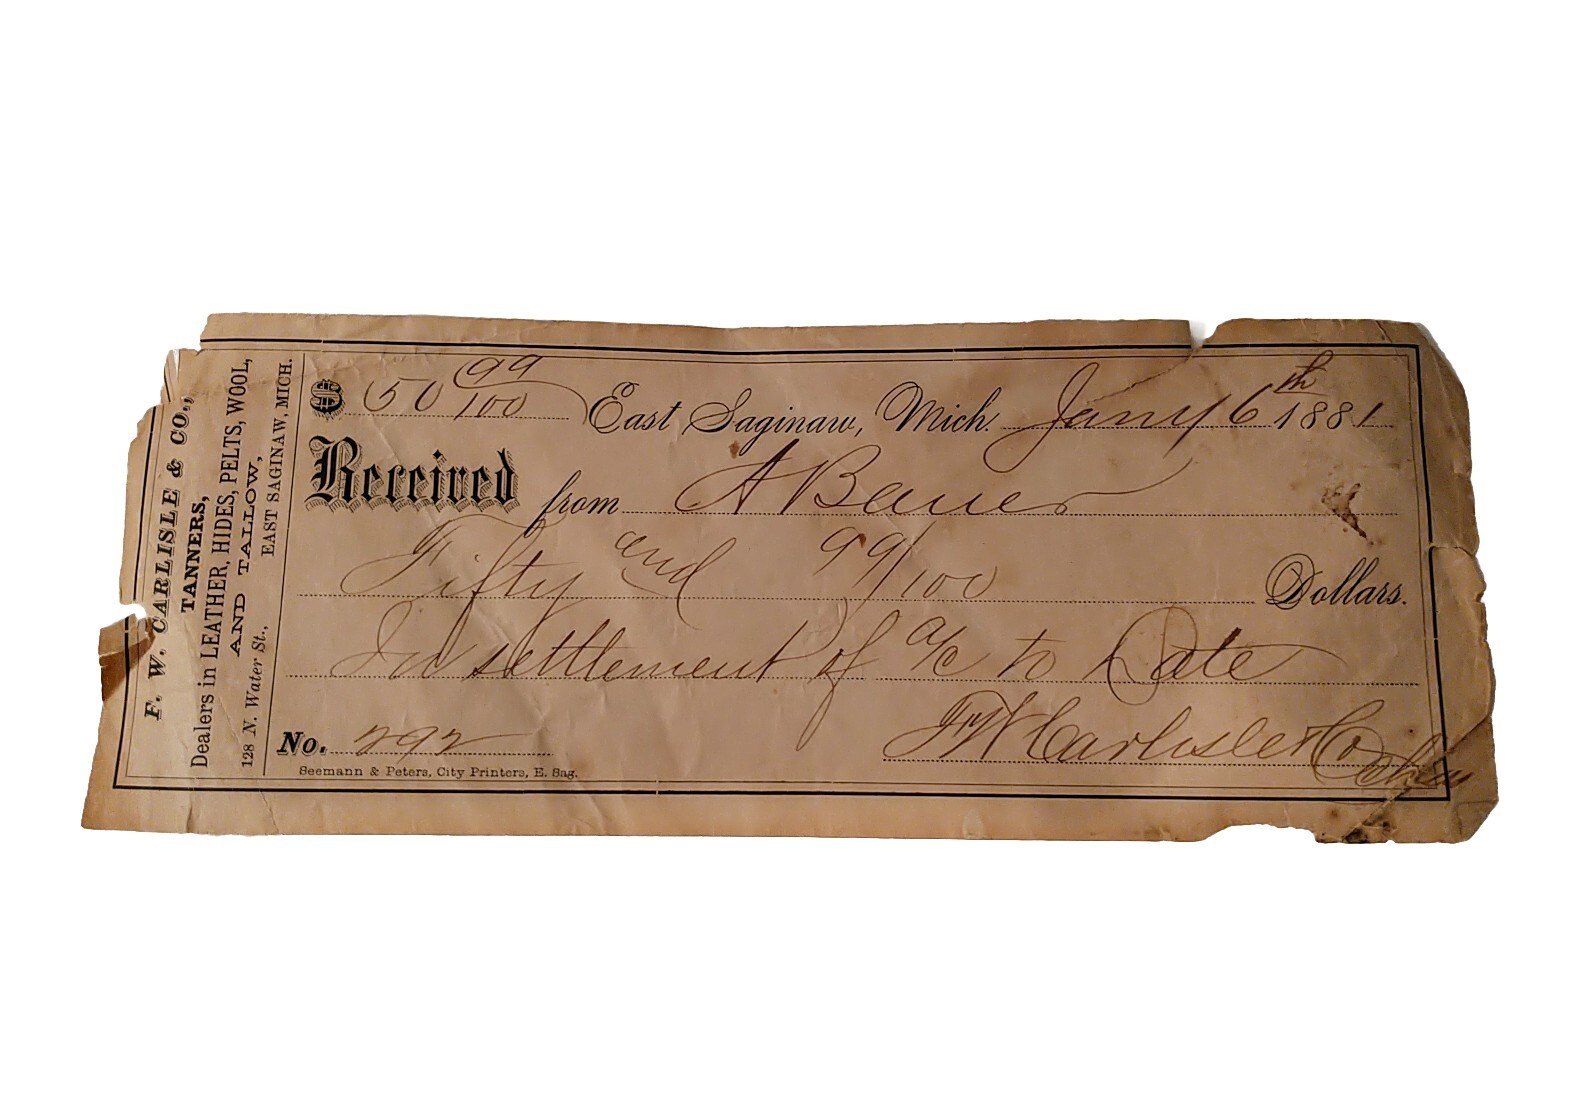 F. W. CARLISLE & CO.,
TANNERS,
Dealers in LEATHER, HIDES, PELTS, WOOL,
AND TALLOW,
128 N. Water St., EAST SAGINAW, MICH.
$ 50 99/100 East Saginaw, Mich. Jany 6th 1881
Received from A Bauer
Fifty and 99/100 Dollars.
In settlement of a/c to Date
No. 292 FW Carlisle & Co
Seemann & Peters, City Printers, E. Sag.